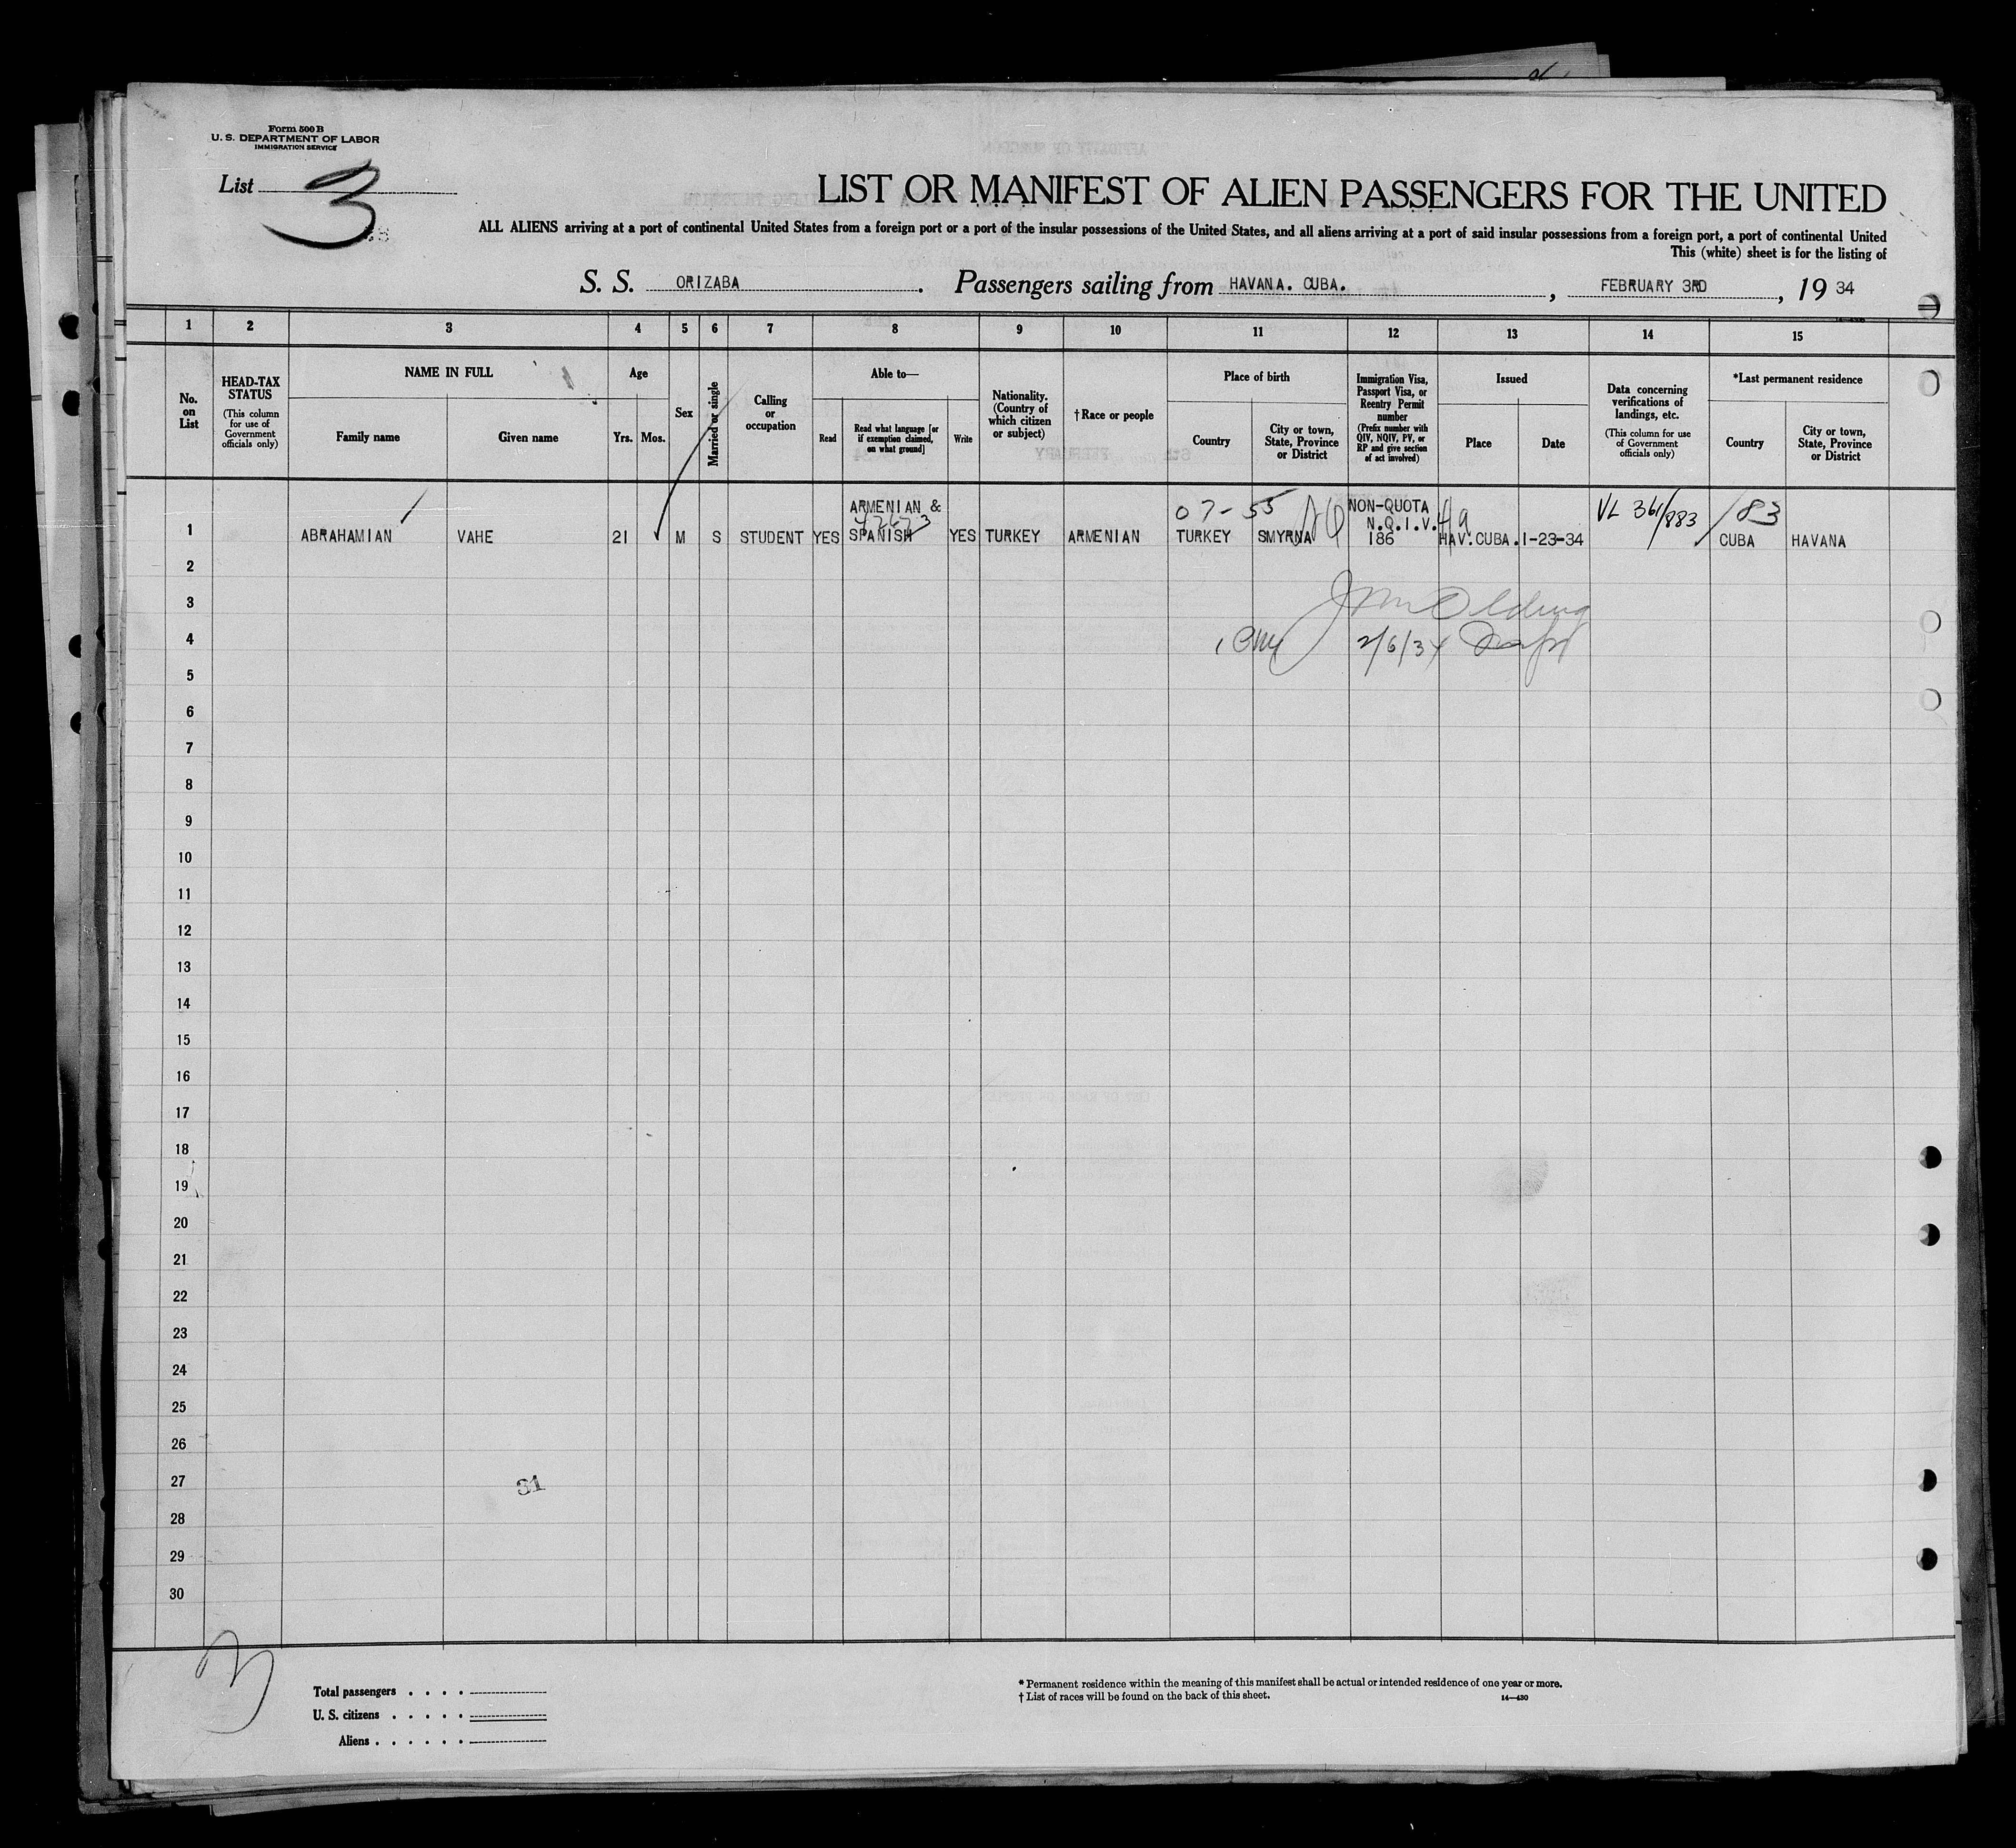 Form 500 B
U. S. DEPARTMENT OF LABOR
IMMIGRATION SERVICE
List 3
LIST OR MANIFEST OF ALIEN PASSENGERS FOR THE UNITED
ALL ALIENS arriving at a port of continental United States from a foreign port or a port of the insular possessions of the United States, and all aliens arriving at a port of said insular possessions from a foreign port, a port of continental United
This (white) sheet is for the listing of
S. S. ORIZABA. Passengers sailing from HAVANA. CUBA., FEBRUARY 3RD, 19 34
1 2 3 4 5 6 7 8 9 10 11 12 13 14 15
No. on List
HEAD-TAX STATUS
(This column for use of Government officials only)
NAME IN FULL
Family name
Given name
Age
Yrs. Mos.
Sex
Married or single
Calling or occupation
Able to—
Read
Read what language [or if exemption claimed, on what ground]
Write
Nationality. (Country of which citizen or subject)
†Race or people
Place of birth
Country
City or town, State, Province or District
Immigration Visa, Passport Visa, or Reentry Permit number
(Prefix number with QIV, NQIV, PV, or RP and give section of act involved)
Issued
Place
Date
Data concerning verifications of landings, etc.
(This column for use of Government officials only)
*Last permanent residence
Country
City or town, State, Province or District
ARMENIAN & 07-55 NON-QUOTA VL 361/883 183
N.Q.I.V.
1 ABRAHAMIAN VAHE 21 M S STUDENT YES SPANISH YES TURKEY ARMENIAN TURKEY SMYRNA 186 HAV. CUBA. 1-23-34 CUBA HAVANA
2
3
4 2/6/34
5
6
7
8
9
10
11
12
13
14
15
16
17
18
19
20
21
22
23
24
25
26
27 31
28
29
30
Total passengers
U. S. citizens
Aliens
* Permanent residence within the meaning of this manifest shall be actual or intended residence of one year or more.
† List of races will be found on the back of this sheet. 14—430